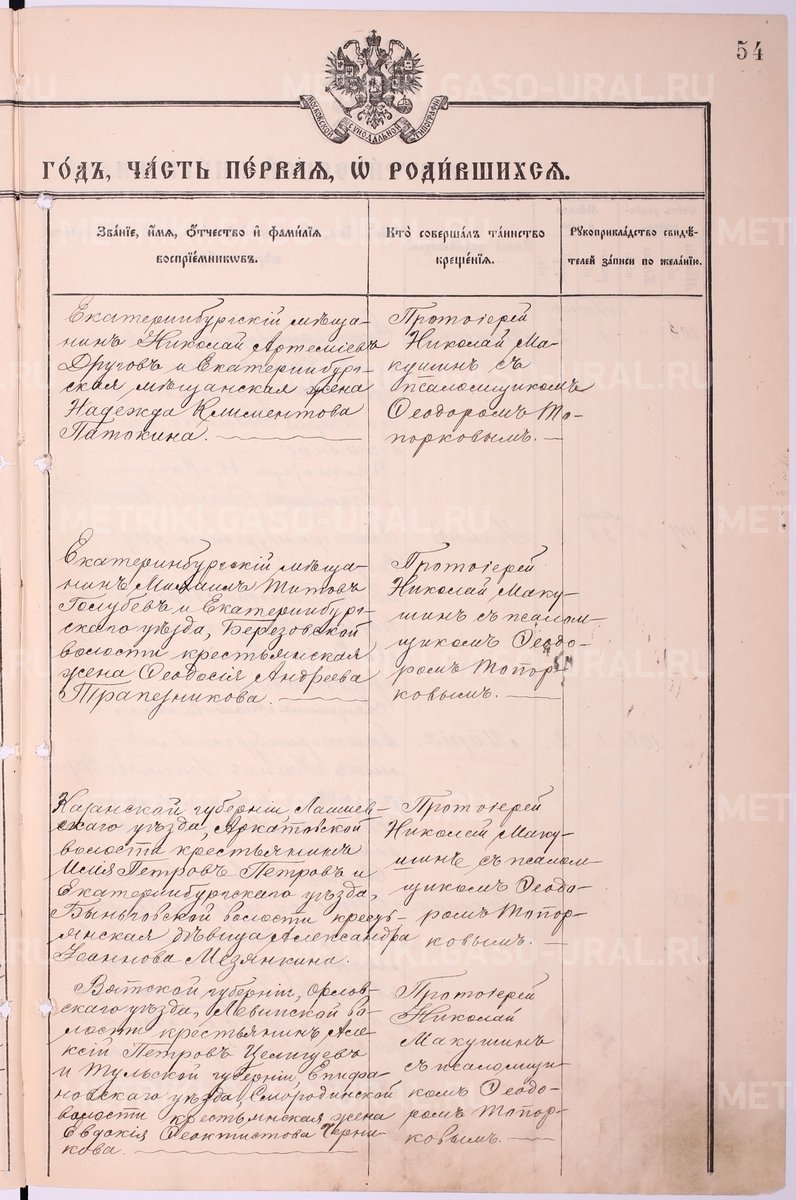 54
МОСКОВСКОЙ СѴНОДАЛЬНОЙ ТИПОГРАФІИ
ГО́ДЪ, ЧА́СТЬ ПЕ́РВАЯ, Ѽ РОДИ́ВШИХСЯ.
ЗВА́НІЕ, И҆́МЯ, Ѻ҆́ТЧЕСТВО И҆ ФАМИ́ЛІЯ
ВОСПРІЕ́МНИКѠВЪ.
КТО̀ СОВЕРША́ЛЪ ТА́ИНСТВО
КРЕЩЕ́НІЯ.
РꙊКОПРИКЛА́ДСТВО СВИДѢ́-
ТЕЛЕЙ ЗА́ПИСИ ПО ЖЕЛА́НІЮ.
Екатеринбургскій мѣща-
нинъ Николай Артеміевъ
Друговъ и Екатеринбург-
ская мѣщанская жена
Надежда Климентова
Патокина.
Протоіерей
Николай Ма-
кушинъ съ
псаломщикомъ
Ѳеодоромъ То-
порковымъ. —
Екатеринбургскій мѣща-
нинъ Михаилъ Титовъ
Голубевъ и Екатеринбург-
скаго уѣзда, Березовской
волости крестьянская
жена Ѳеодосія Андреева
Трапезникова.
Протоіерей
Николай Маку-
шинъ съ псалом-
щикомъ Ѳеодо-
ромъ Топор-
ковымъ. —
Казанской губерніи Лаишев-
скаго уѣзда, Аркатовской
волости крестьянинъ
Илія Петровъ Петровъ и
Екатеринбургскаго уѣзда,
Быньговской волости кресть-
янская дѣвица Александра
Іоаннова Мезянкина.
Протоіерей
Николай Маку-
шинъ съ псалом-
щикомъ Ѳеодо-
ромъ Топор-
ковымъ. —
Вятской губерніи, Орлов-
скаго уѣзда, Левинской во-
лости крестьянинъ Але-
ксій Петровъ Целищевъ
и Тульской губерніи, Епифа-
новскаго уѣзда, Смородинской
волости крестьянская жена
Евдокія Ѳеоктистова Черни-
кова.
Протоіерей
Николай
Макушинъ
съ псаломщи-
комъ Ѳеодо-
ромъ Топор-
ковымъ. —
METRIKI.GASO-URAL.RU